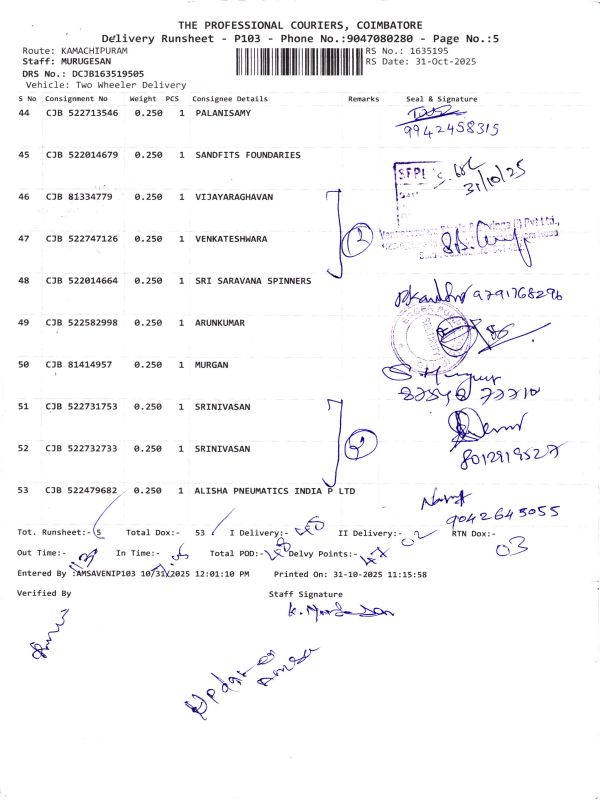 THE PROFESSIONAL COURIERS, COIMBATORE
Delivery Runsheet - P103 - Phone No.:9047080280 - Page No.:5
Route: KAMACHIPURAM RS No.: 1635195
Staff: MURUGESAN RS Date: 31-Oct-2025
DRS No.: DCJB163519505
Vehicle: Two Wheeler Delivery
S No Consignment No Weight PCS Consignee Details Remarks Seal & Signature
44 CJB 522713546 0.250 1 PALANISAMY
9942458315
45 CJB 522014679 0.250 1 SANDFITS FOUNDARIES
SFPL
31/10/25
46 CJB 81334779 0.250 1 VIJAYARAGHAVAN
2
47 CJB 522747126 0.250 1 VENKATESHWARA
48 CJB 522014664 0.250 1 SRI SARAVANA SPINNERS
9791768296
49 CJB 522582998 0.250 1 ARUNKUMAR
50 CJB 81414957 0.250 1 MURGAN
51 CJB 522731753 0.250 1 SRINIVASAN
2
52 CJB 522732733 0.250 1 SRINIVASAN
8012919527
53 CJB 522479682 0.250 1 ALISHA PNEUMATICS INDIA P LTD
9042645055
Tot. Runsheet:- 5 Total Dox:- 53 I Delivery:- 48 II Delivery:- 02 RTN Dox:- 03
Out Time:- In Time:- Total POD:- 48 Delvy Points:- 47
Entered By :AMSAVENIP103 10/31/2025 12:01:10 PM Printed On: 31-10-2025 11:15:58
Verified By Staff Signature